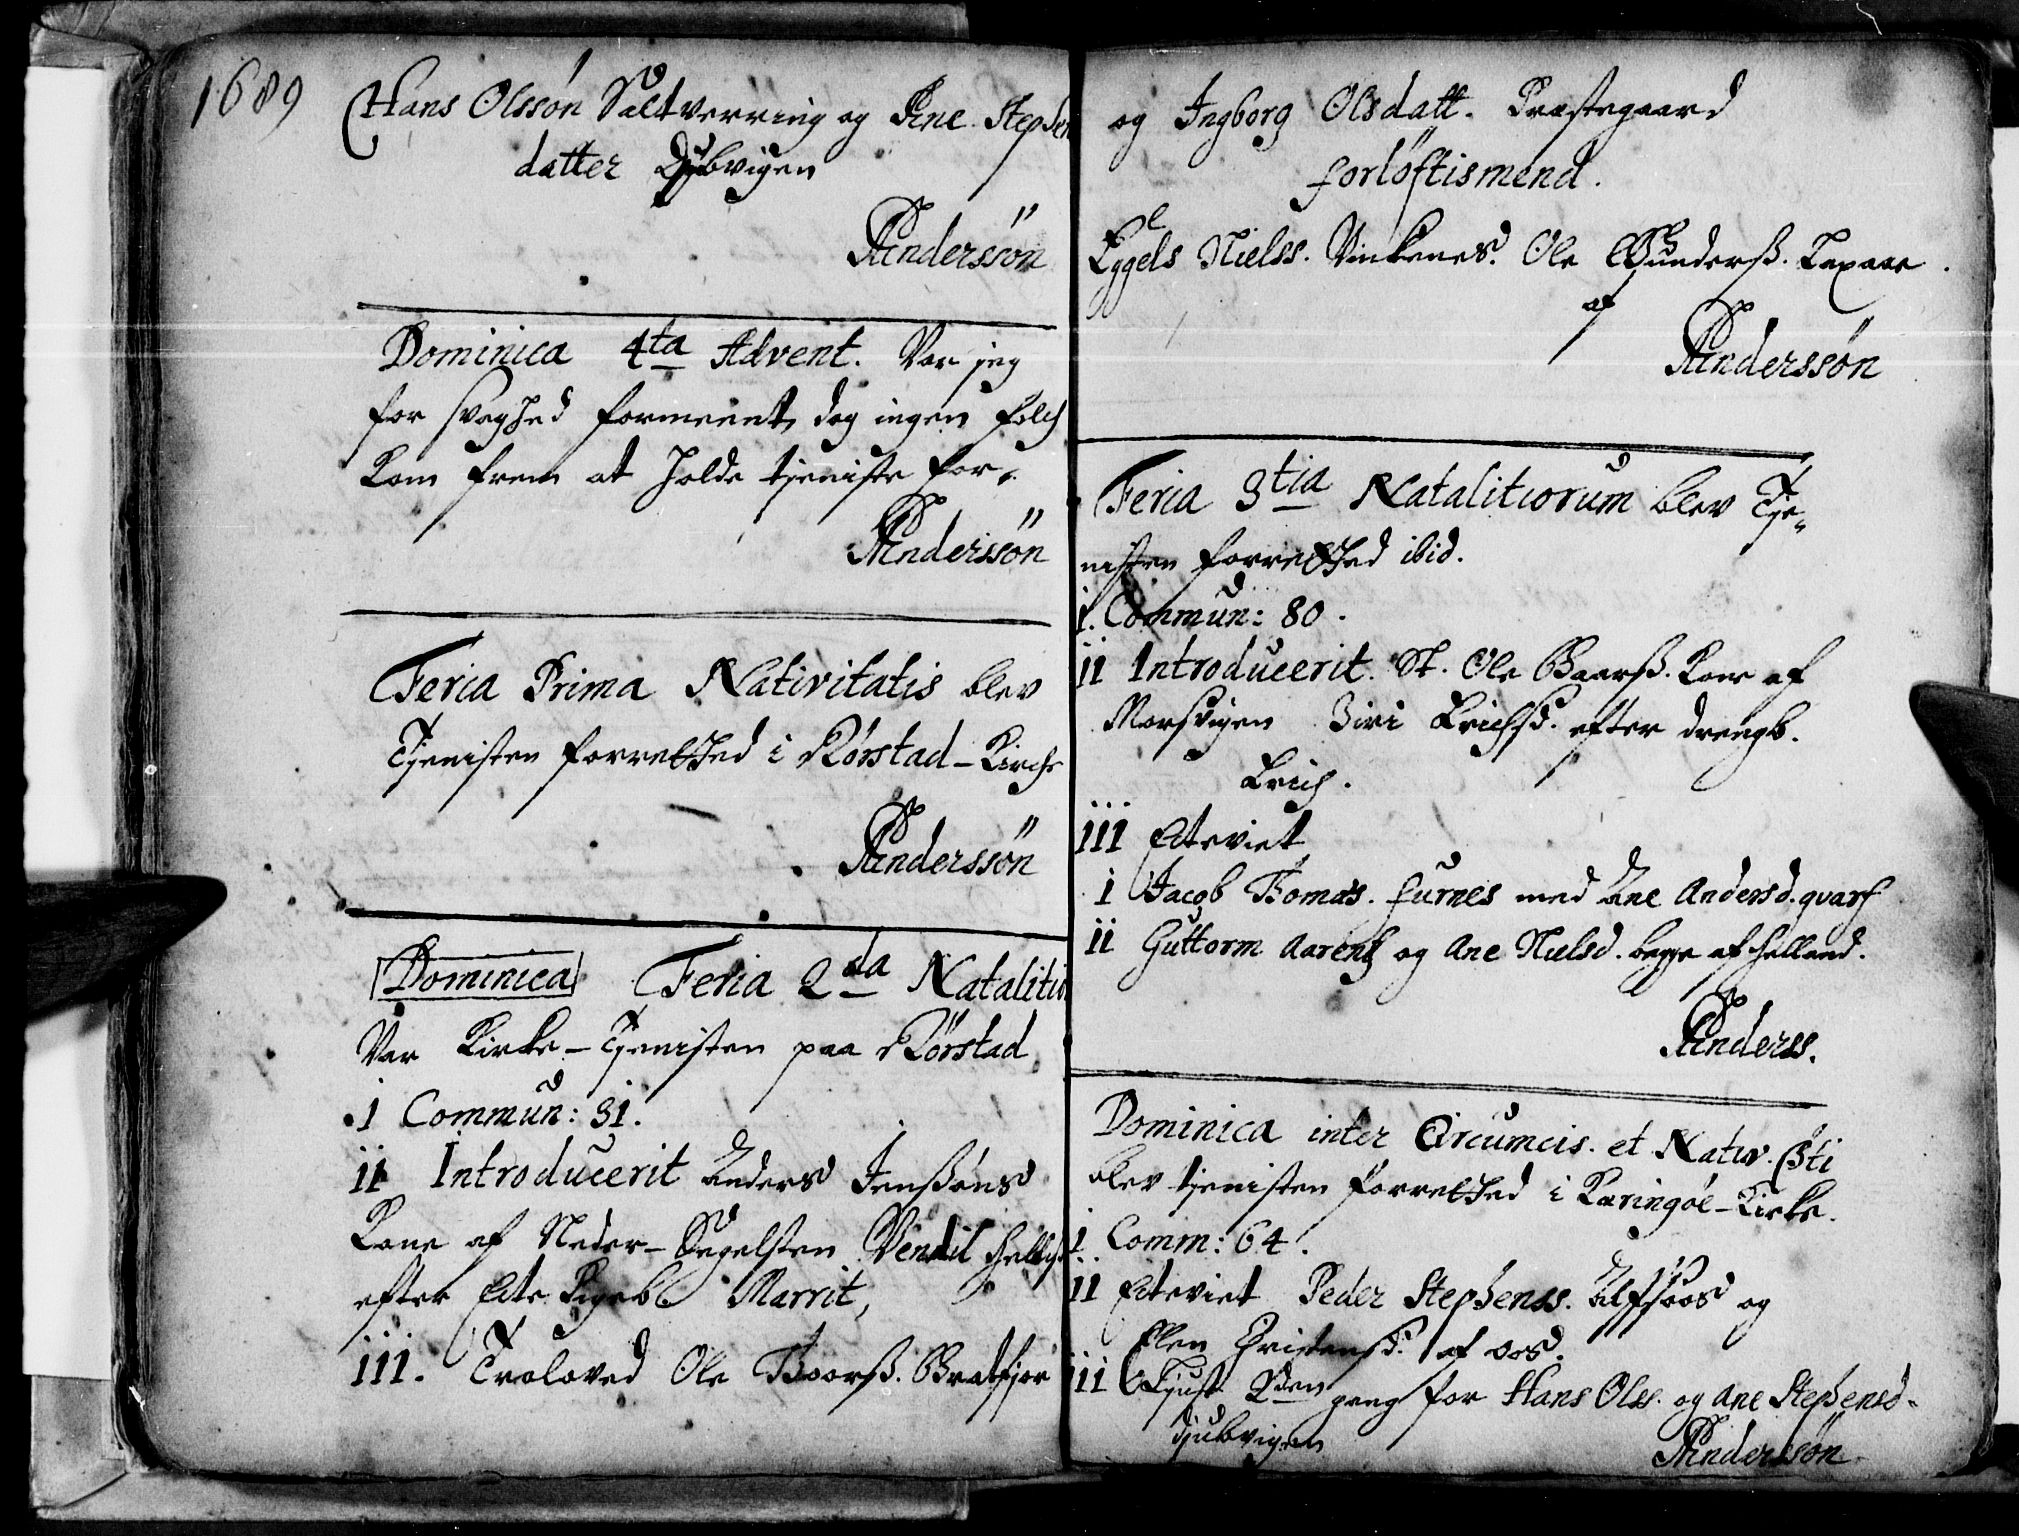 1689
Hans Olssøn Saltverring og Ane Stephen
datter Djubvigen
PAnderssøn
Dominica 4ta Advent. Var jeg
for svaghed formeent, dog ingen folch
kom frem at holde tjeniste for.
PAnderssøn
Feria Prima Nativitatis blev
Tjenisten forretthed i Rörstad-Kirche
PAnderssøn
Dominica Feria 2da Natalitio
Var Kirke-Tjenisten paa Rörstad
i Commun: 31.
ii Introducerit Anders Jenssøns
Kone af Neder-Segelsten Vendil
efter Egte Pigeb. Marrit,
iii. Troloved Ole Thoorß. Bratfjor
og Ingborg Olsdatt. Præstegaard
forlöftismend.
Eggels Nielss. Vinkenes. Ole Gunderß. Laxaae.
af
PAnderssøn
Feria 3tia Natalitiorum blev Tje-
nisten forretthed ibid.
i. Commun: 80.
ii Introducerit. St. Ole Baarß. Kone af
Morsvigen Ziri Erichsd. efter drengb.
Erich.
iii Egteviet
i Jacob Thomæs. furnes med Ane Andersd. qvarf
ii Guttorm Aarenß og Ane Nielsd. begge af helland.
PAnderss.
Dominica inter Circumcis. et Nativ. Xsti
blev tjenisten forretthed i Karingøe-Kirke.
i Comm: 64.
ii Egteviet Peder Stephenss. og
Ellen Christensd. af
iii Liust 2den gang for Hans Olss. og Ane Stephensd.
Djubvigen
PAnderssøn